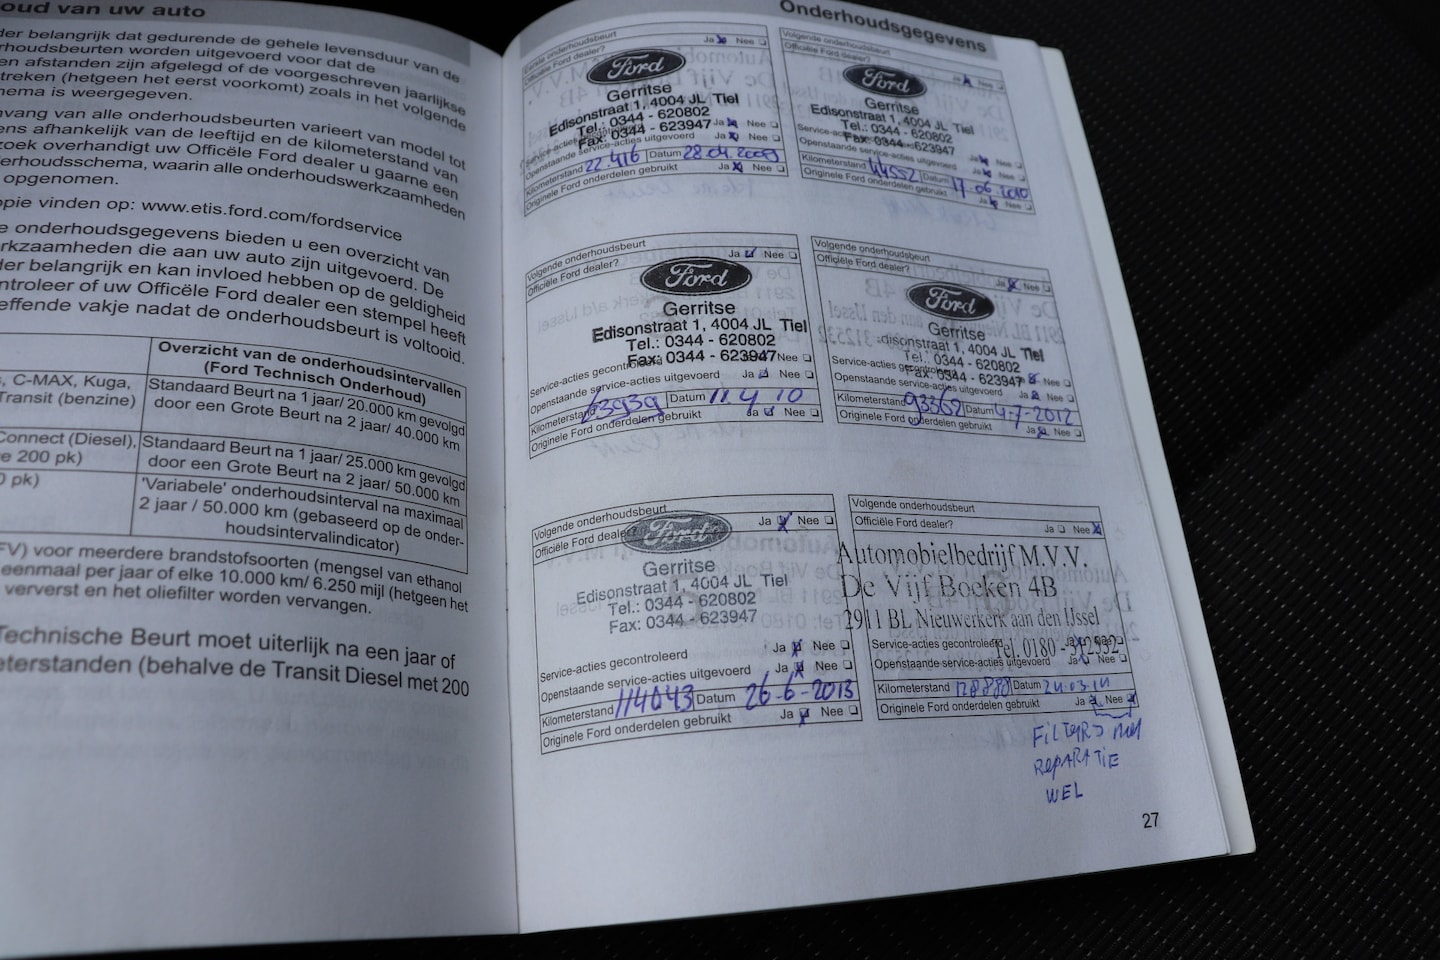 oud van uw auto
der belangrijk dat gedurende de gehele levensduur van de
rhoudsbeurten worden uitgevoerd voor dat de
en afstanden zijn afgelegd of de voorgeschreven jaarlijkse
treken (hetgeen het eerst voorkomt) zoals in het volgende
hema is weergegeven.
nvang van alle onderhoudsbeurten varieert van model tot
ens afhankelijk van de leeftijd en de kilometerstand van
zoek overhandigt uw Officële Ford dealer u gaarne een
derhoudsschema, waarin alle onderhoudswerkzaamheden
opgenomen.
opie vinden op: www.etis.ford.com/fordservice
e onderhoudsgegevens bieden u een overzicht van
rkzaamheden die aan uw auto zijn uitgevoerd. De
der belangrijk en kan invloed hebben op de geldigheid
ntroleer of uw Officële Ford dealer een stempel heeft
effende vakje nadat de onderhoudsbeurt is voltooid.
Overzicht van de onderhoudsintervallen
(Ford Technisch Onderhoud)
, C-MAX, Kuga,
Transit (benzine)
Standaard Beurt na 1 jaar/ 20.000 km gevolgd
door een Grote Beurt na 2 jaar/ 40.000 km
Connect (Diesel),
e 200 pk)
Standaard Beurt na 1 jaar/ 25.000 km gevolgd
door een Grote Beurt na 2 jaar/ 50.000 km
0 pk)
'Variabele' onderhoudsinterval na maximaal
2 jaar / 50.000 km (gebaseerd op de onder-
houdsintervalindicator)
FV) voor meerdere brandstofsoorten (mengsel van ethanol
eenmaal per jaar of elke 10.000 km/ 6.250 mijl (hetgeen het
ververst en het oliefilter worden vervangen.
Technische Beurt moet uiterlijk na een jaar of
eterstanden (behalve de Transit Diesel met 200
Onderhoudsgegevens
Eerste onderhoudsbeurt
Officiële Ford dealer? Ja Nee
Ford
Gerritse
Edisonstraat 1, 4004 JL Tiel
Tel.: 0344 - 620802
Fax: 0344 - 623947
Service-acties Ja Nee
Openstaande service-acties uitgevoerd Ja Nee
Kilometerstand 22.416 Datum 28.04.2009
Originele Ford onderdelen gebruikt Ja Nee
Volgende onderhoudsbeurt
Officiële Ford dealer? Ja Nee
Ford
Gerritse
Edisonstraat 1, 4004 JL Tiel
Tel.: 0344 - 620802
Fax: 0344 - 623947
Service-acties
Openstaande service-acties uitgevoerd Ja Nee
Kilometerstand 44552 Datum 17-06-2010
Originele Ford onderdelen gebruikt Ja Nee
Volgende onderhoudsbeurt
Officiële Ford dealer? Ja Nee
Ford
Gerritse
Edisonstraat 1, 4004 JL Tiel
Tel.: 0344 - 620802
Fax: 0344 - 623947
Service-acties gecontroleerd Nee
Openstaande service-acties uitgevoerd Ja Nee
Kilometerstand 63939 Datum 11.4 10
Originele Ford onderdelen gebruikt Ja Nee
Volgende onderhoudsbeurt
Officiële Ford dealer? Ja Nee
Ford
Gerritse
Edisonstraat 1, 4004 JL Tiel
Tel.: 0344 - 620802
Fax: 0344 - 623947
Service-acties gecontroleerd Ja Nee
Openstaande service-acties uitgevoerd Ja Nee
Kilometerstand 93362 Datum 4-7-2012
Originele Ford onderdelen gebruikt Ja Nee
Volgende onderhoudsbeurt
Officiële Ford dealer Ja Nee
Ford
Gerritse
Edisonstraat 1, 4004 JL Tiel
Tel.: 0344 - 620802
Fax: 0344 - 623947
Service-acties gecontroleerd Ja Nee
Openstaande service-acties uitgevoerd Ja Nee
Kilometerstand 114043 Datum 26-6-2013
Originele Ford onderdelen gebruikt Ja Nee
Volgende onderhoudsbeurt
Officiële Ford dealer? Ja Nee
Automobielbedrijf M.V.V.
De Vijf Boeken 4B
2911 BL Nieuwerkerk aan den IJssel
Tel. 0180 - 312532
Service-acties gecontroleerd Ja Nee
Openstaande service-acties uitgevoerd Ja
Kilometerstand 128888 Datum 24.03.14
Originele Ford onderdelen gebruikt Ja Nee
FilTERS
REPARATIE
WEL
27